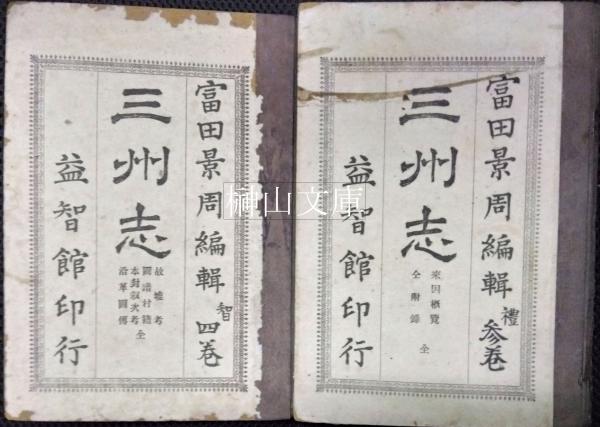 富田景周編輯 禮 參卷
三州志
來因概覽
仝附錄 全
益智館印行
富田景周編輯 智 四卷
三州志
故墟考
圖譜村籍
本封叙次考
沿革圖傳 全
益智館印行
榊山文庫